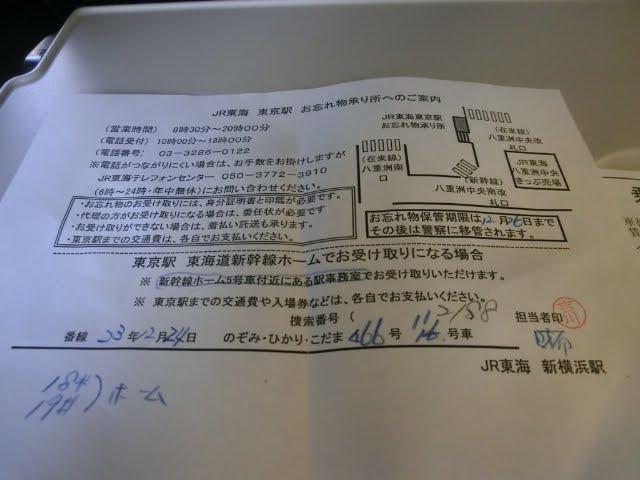 JR東海 東京駅 お忘れ物承り所へのご案内
(営業時間) 8時30分~20時00分
(電話受付) 10時00分~18時00分
(電話番号) 03-3286-0122
※電話がつながりにくい場合は、お手数をお掛けしますが
JR東海テレフォンセンター 050-3772-3910
(6時~24時・年中無休)にお問い合わせください。
・お忘れ物のお受け取りには、身分証明書と印鑑が必要です
・代理の方がお受け取りになる場合は、委任状が必要です
・お受け取りができない場合は、着払い託送も承ります。
・東京駅までの交通費は、各自でお支払いください。
JR東海東京駅
お忘れ物承り所
(在来線)
八重洲中央改
札口
(在来線)
八重洲南
口
(新幹線)
八重洲中央南改
札口
JR東海
八重洲中央
きっぷ売場
お忘れ物保管期限は12月26日まで
その後は警察に移管されます。
東京駅 東海道新幹線ホームでお受け取りになる場合
※ 新幹線ホーム5号車付近にある駅事務室でお受け取りいただけます。
※ 東京駅までの交通費や入場券などは、各自でお支払いください。
捜索番号(
担当者印
番線 23年12月24日 のぞみ・ひかり・こだま 466号 11号車
JR東海 新横浜駅
18#
19#)ホーム